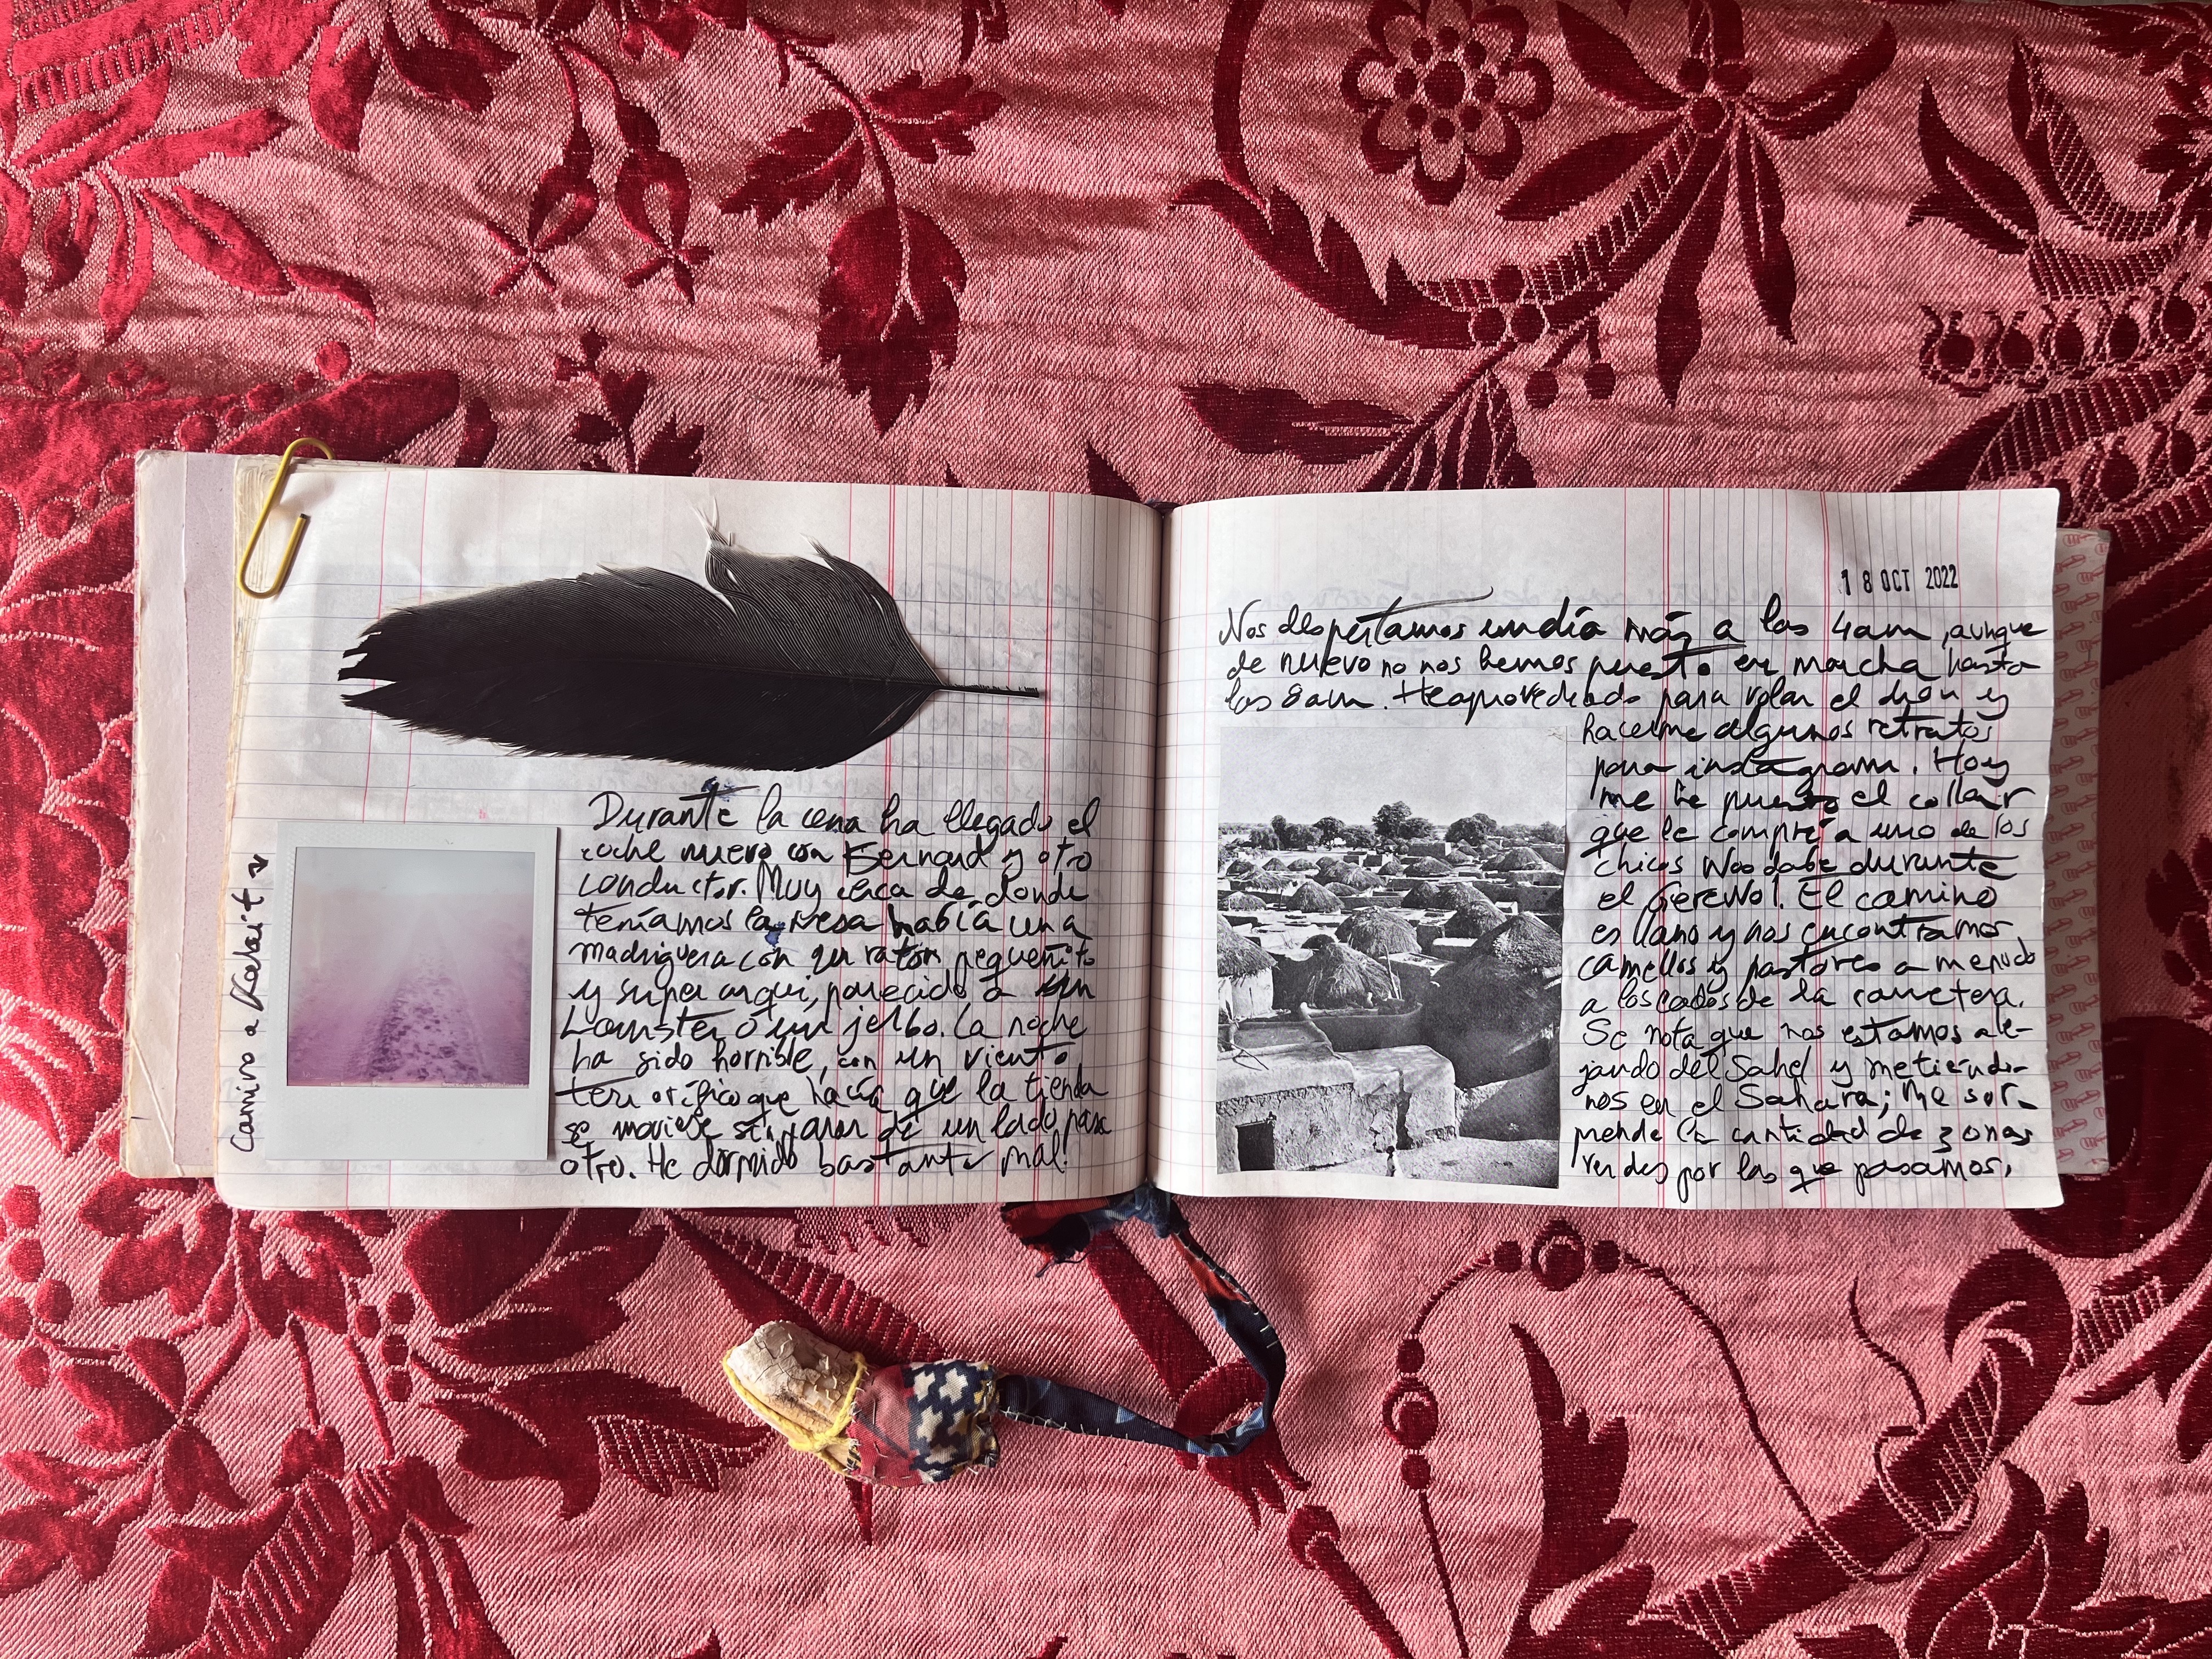 Camino a Kalait
Durante la cena ha llegado el
coche nuevo con Bernard y otro
conductor. Muy cerca de donde
teníamos la mesa había una
madriguera con un ratón pequeñito
y super cuqui, parecido a un
hamster o un jerbo. La noche
ha sido horrible, con un viento
terrorífico que hacía que la tienda
se moviese sin parar de un lado para
otro. He dormido bastante mal!
18 OCT 2022
Nos despertamos un día más a las 4am, aunque
de nuevo no nos hemos puesto en marcha hasta
las 8am. He aprovechado para volar el dron y
hacerme algunos retratos
para instagram. Hoy
me he puesto el collar
que le compré a uno de los
chicos Woodabe durante
el Gerewol. El camino
es llano y nos encontramos
camellos y pastores a menudo
a los lados de la carretera.
Se nota que nos estamos ale-
jando del Sahel y metiéndo-
nos en el Sahara; me sor-
prende la cantidad de zonas
verdes por las que pasamos,